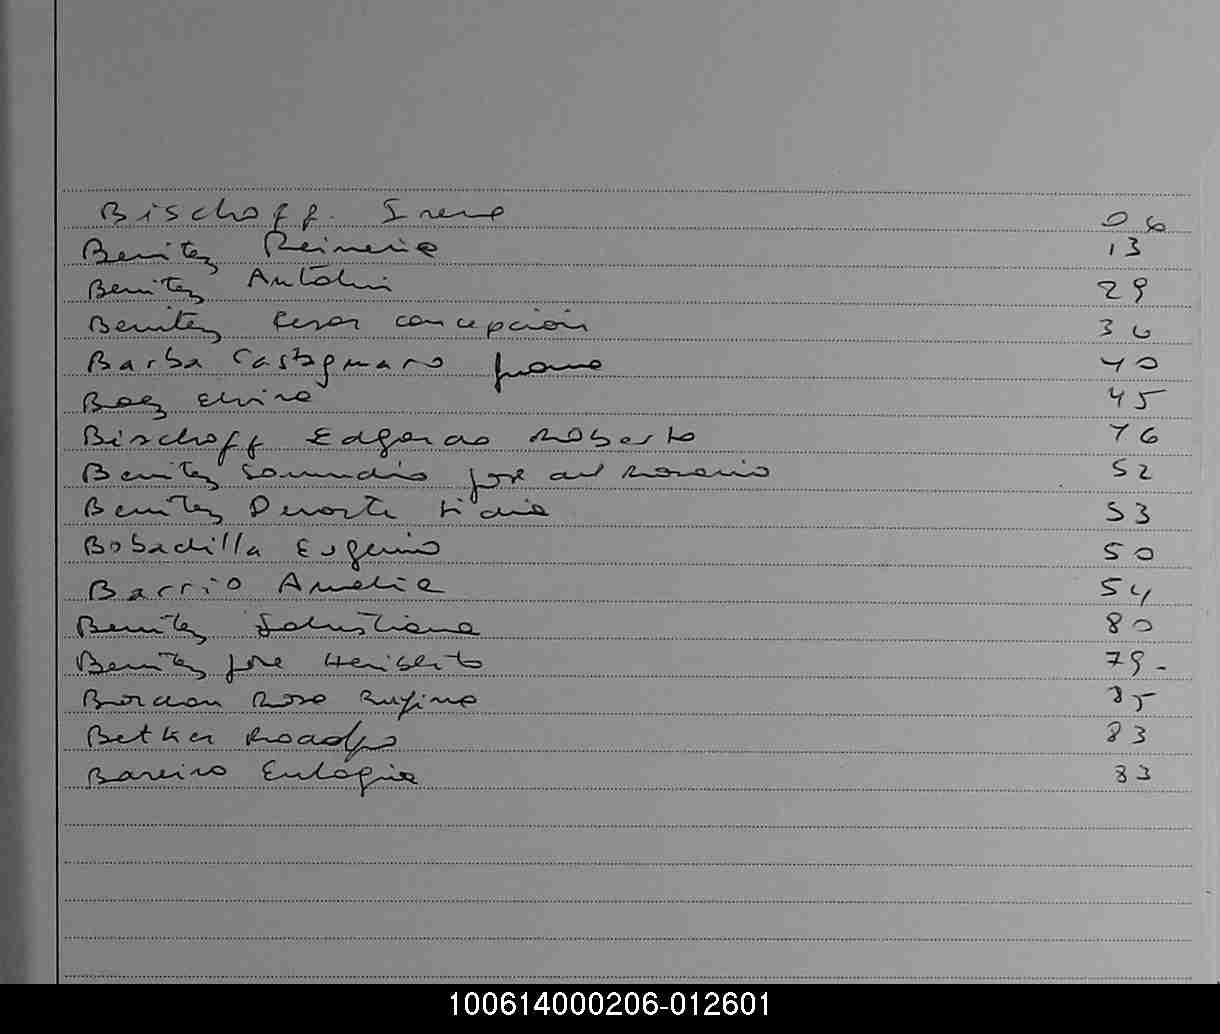 Bischoff. Irene 06
Benitez Reinerio 13
Benitez Antolin 29
Benitez Cesar concepción 36
Barba Castagnaro Juana 40
Baez Elvira 45
Bischoff Edgardo Roberto 76
Benitez José del Rosario 52
Benitez Lidia 53
Bobadilla Eugenio 50
Barrio Amelia 54
Benitez Salustiana 80
Benitez José Heriberto 79-
Bordon Rosa Rufina 85
Betker Rodolfo 83
Bareiro Eulogia 83
100614000206-012601